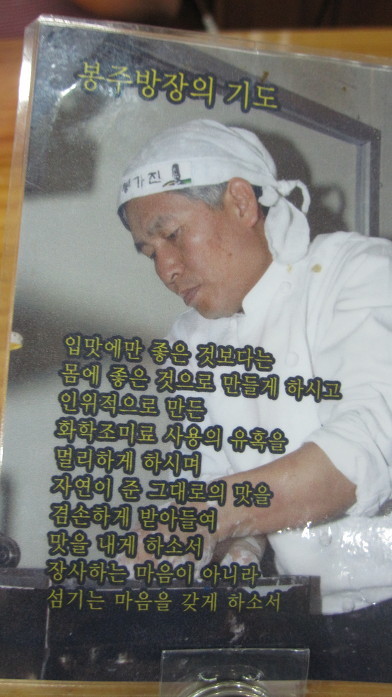 봉주방장의 기도
가진
입맛에만 좋은 것보다는
몸에 좋은 것으로 만들게 하시고
인위적으로 만든
화학조미료 사용의 유혹을
멀리하게 하시며
자연이 준 그대로의 맛을
겸손하게 받아들여
맛을 내게 하소서
장사하는 마음이 아니라
섬기는 마음을 갖게 하소서